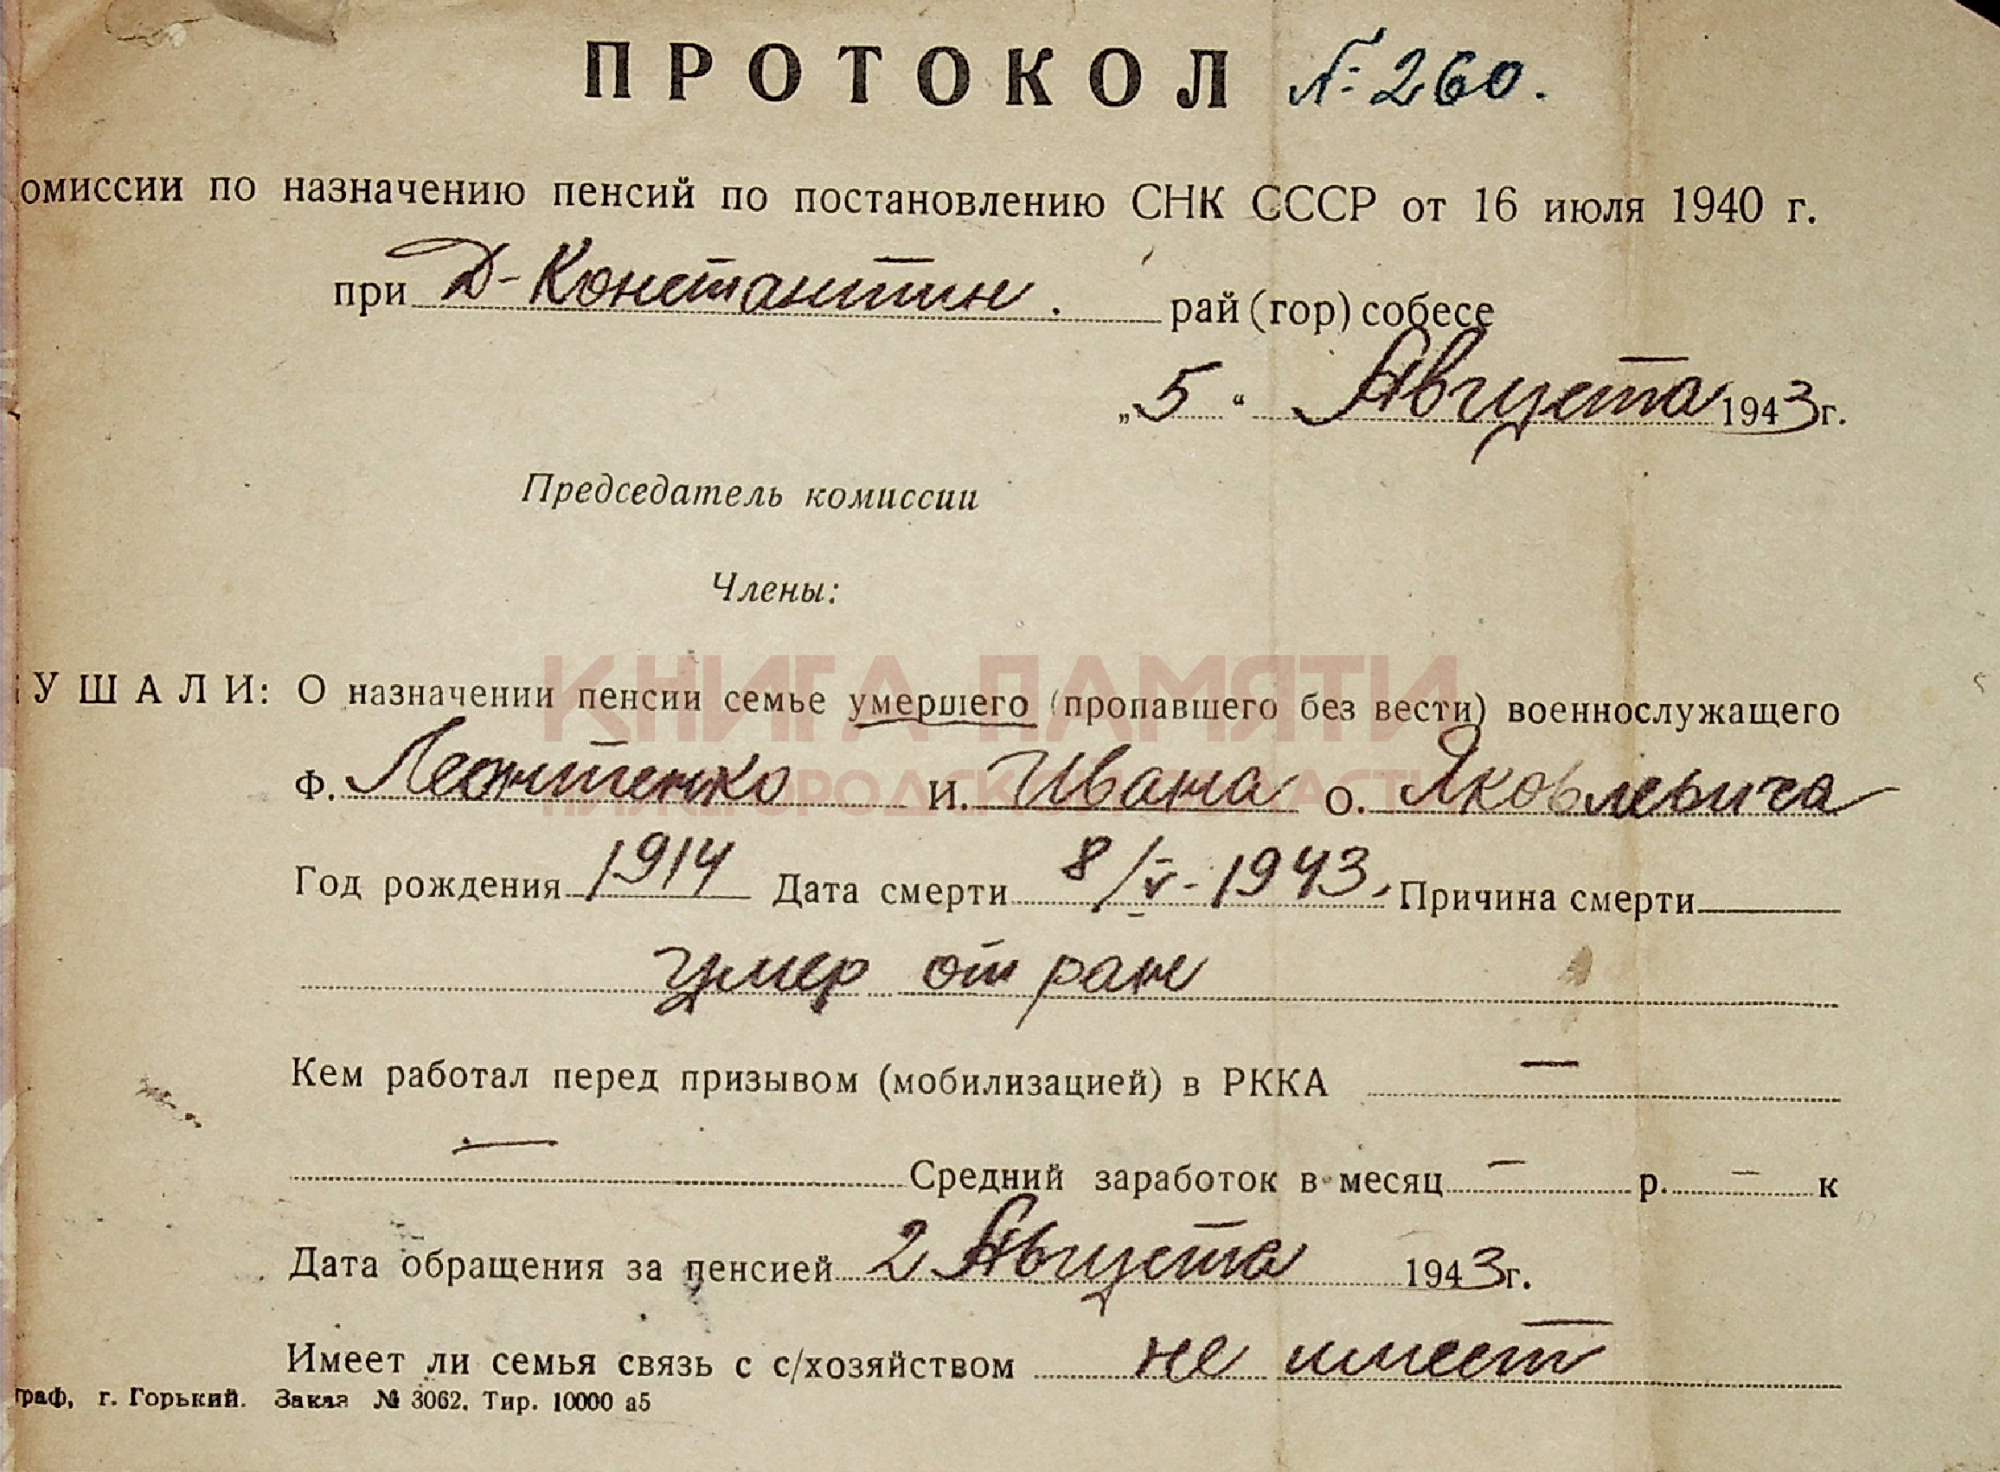 ПРОТОКОЛ №260.
омиссии по назначению пенсий по постановлению СНК СССР от 16 июля 1940 г.
при Д-Константин. рай (гор) собесе
„5“ Августа 1943 г.
Председатель комиссии
Члены:
УШАЛИ: О назначении пенсии семье умершего (пропавшего без вести) военнослужащего
КНИГА ПАМЯТИ
Ф. Леонтенко И. Ивана О. Яковлевича
НИЖЕГОРОДСКОЙ ОБЛАСТИ
Год рождения 1914 Дата смерти 8/V-1943, Причина смерти
умер от ран
Кем работал перед призывом (мобилизацией) в РККА —
— Средний заработок в месяц — р. — к
Дата обращения за пенсией 2 Августа 1943 г.
Имеет ли семья связь с с/хозяйством не имеет
граф, г. Горький. Заказ № 3062. Тир. 10000 а5